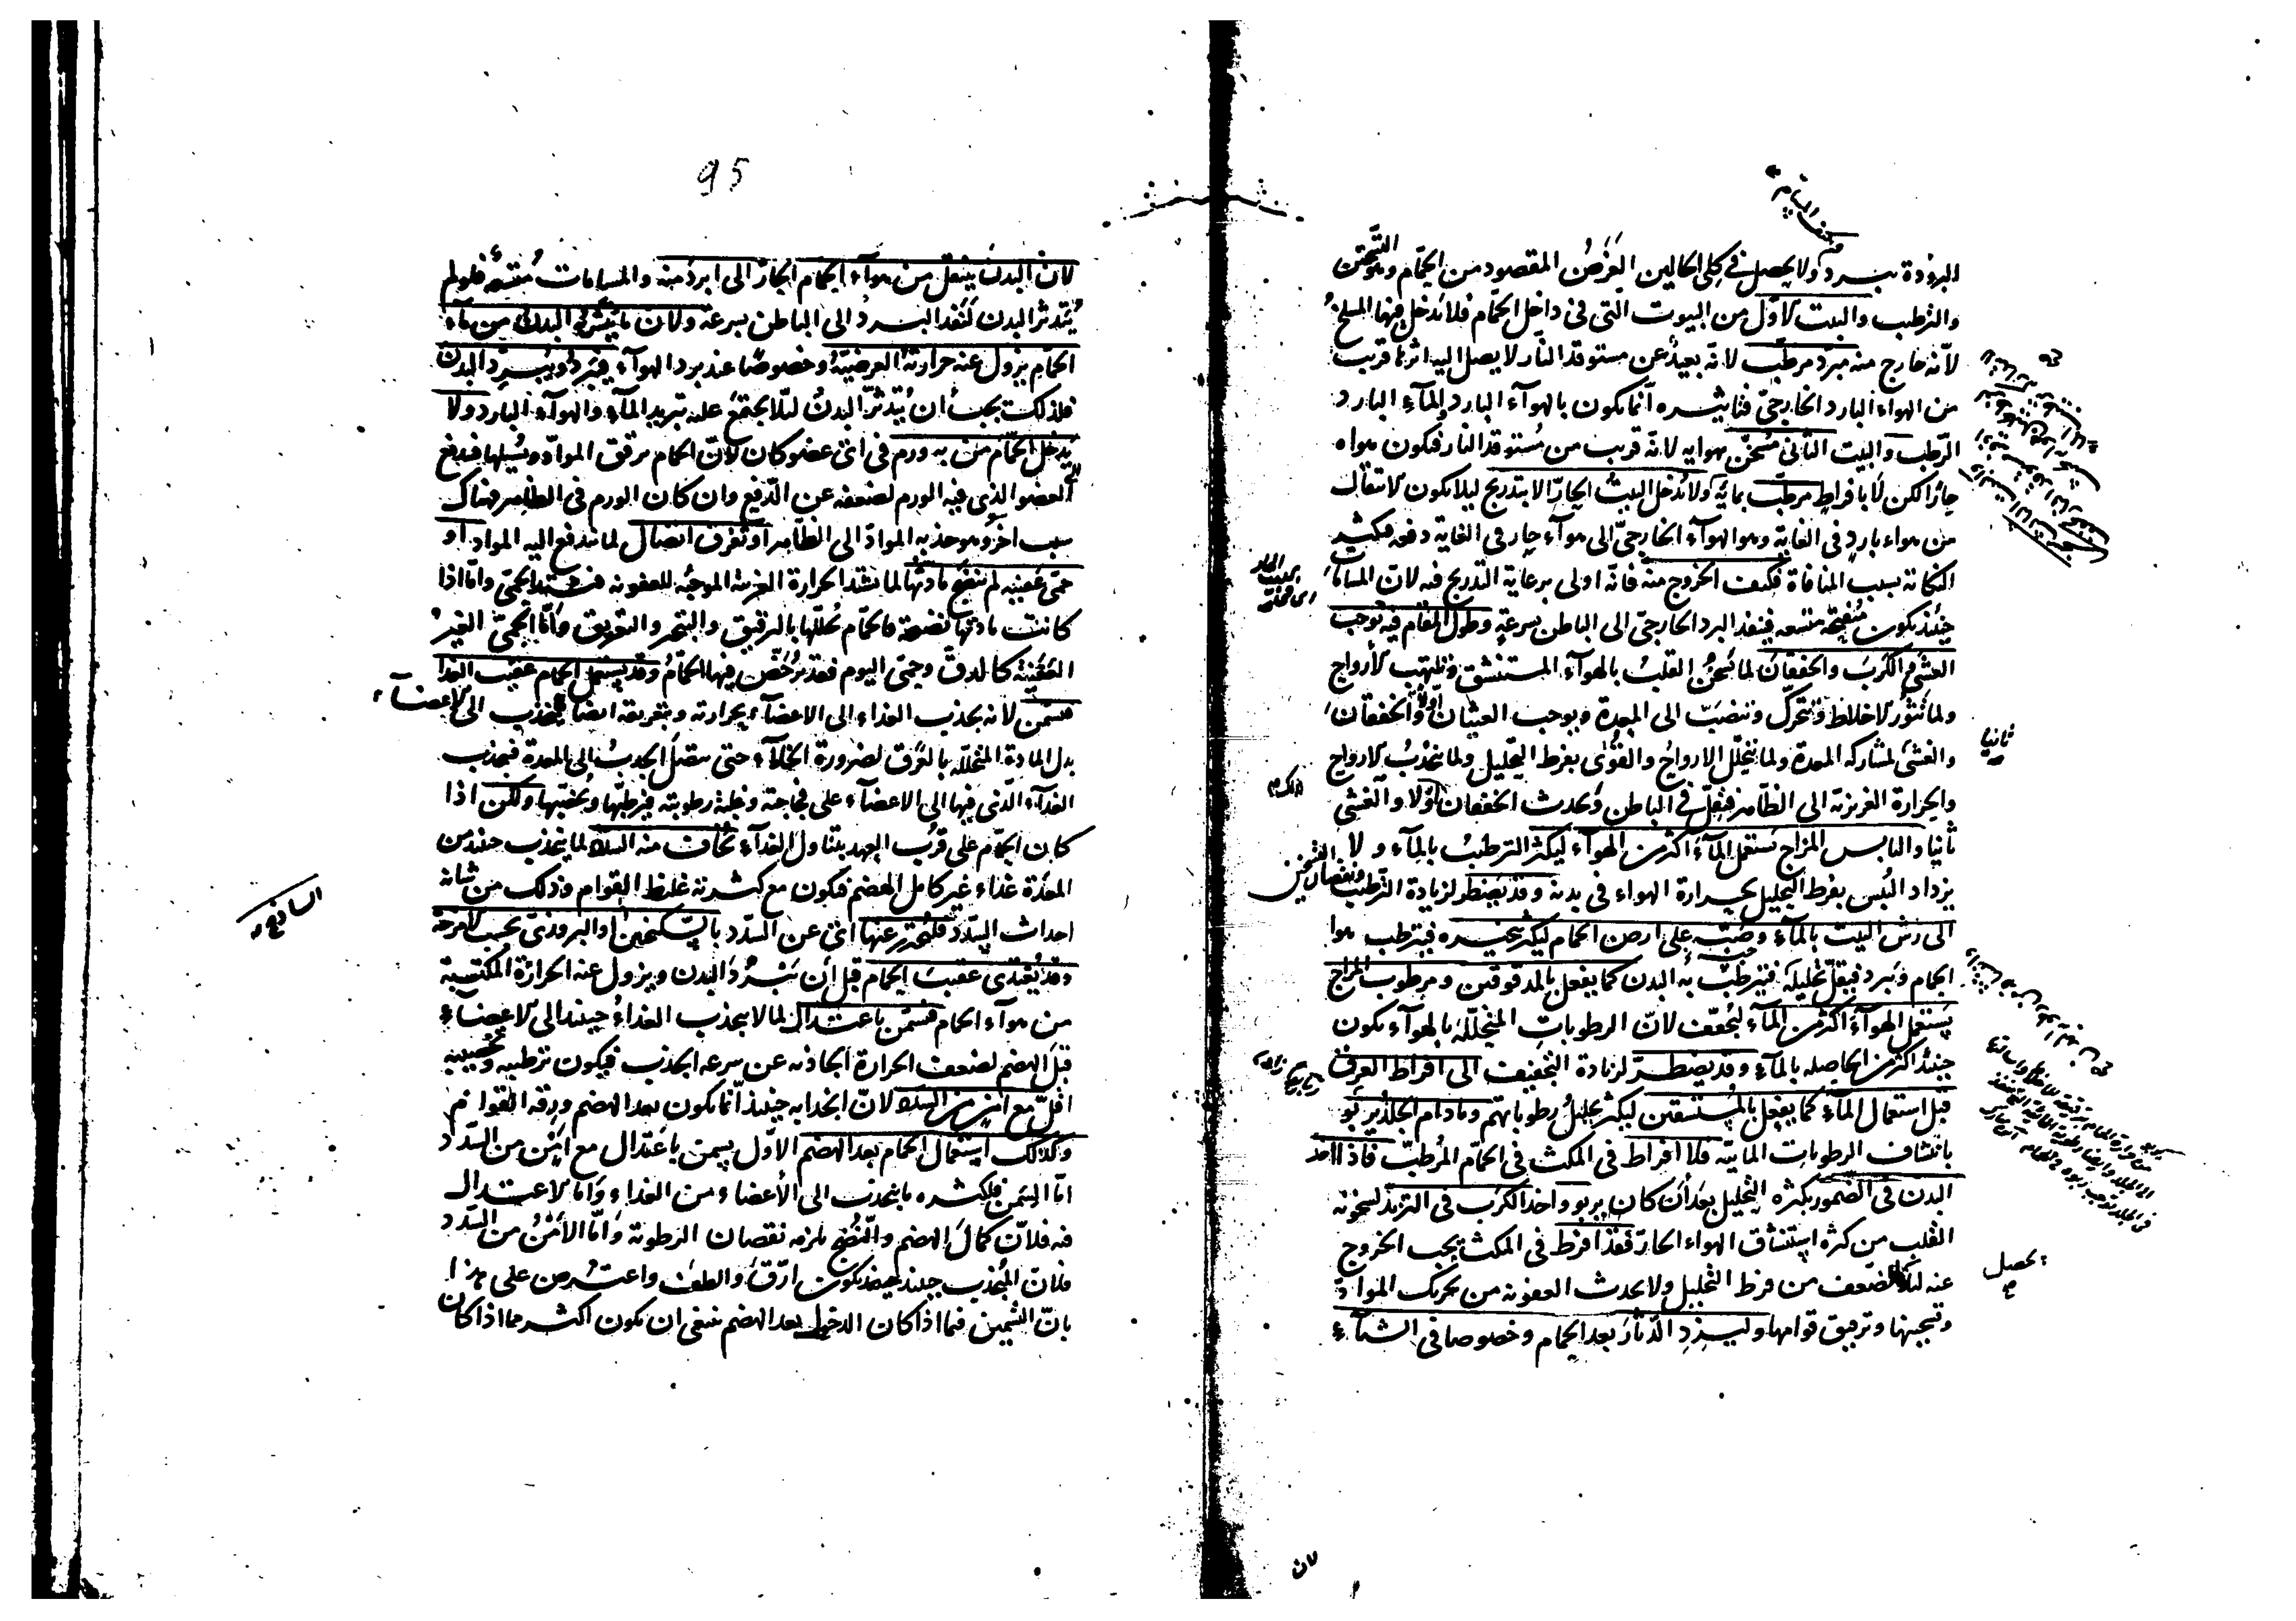 البرودة يبرد ولا يحصل في كلى الحالين الغرض المقصود من الحمام وهو التسخن
والترطب والبيت الاول من البيوت التى فى داخل الحمام فلا يدخل فيها المسلخ
لانه خارج منه مبرد مرطب لانه بعيد عن مستوقد النار لا يصل اليه اثرها قريب
من الهواء البارد الخارجى فتاثيره انما يكون بالهوآء البارد والمآء البارد
الرطب والبيت الثانى مسخن بهوايه لانه قريب من مستوقد النار فيكون هواه
حارا لكن لا بافراط مرطب بمائه ولا يدخل البيت الحار الا بتدريج ليلا يكون الانتقال
من هواء بارد فى الغاية وهو الهوآء الخارجى الى هوآء حار فى الغاية دفعه فيكثر
النكاية بسبب المنافاة فكيف الخروج منه فانه اولى برعاية التدريج فيه لان المسامات
حينئذ يكون منفتحة متسعه فينفذ البرد الخارجى الى الباطن بسرعة وطول المقام فيه يوجب
الغشى والكرب والخفقان لما يسخن القلب بالهوآء المستنشق فيلتهب الارواح
ولما تثور الاخلاط وتتحرك وتنصب الى المعدة ويوجب الغثيان اولا والخفقان
والغشى لمشاركه المعدة ولما يتحلل الارواح والقوى بفرط التحليل ولما ينجذب الارواح
والحرارة الغريزية الى الظاهر فيقل فى الباطن ويحدث الخفقان اولا والغشى
ثانيا واليابس المزاج يستعمل المآء اكثر من الهوآء ليكثر الترطب بالمآء ولا
يزداد اليبس بفرط التحليل بحرارة الهواء فى بدنه وقد يضطر لزيادة الترطب ونقصان التسخين
الى رش البيت بالمآء وصبه على ارض الحمام ليكثر تبخيره فيترطب هوا
الحمام ويبرد فيقل تحليله فيترطب به البدن كما يفعل بالمدقوقين ومرطوب المزاج
يستعمل الهوآء اكثر من المآء ليجفف لان الرطوبات المتحللة بالهوآء يكون
حينئذ اكثر من الحاصله بالمآء وقد يضطر لزيادة التجفيف الى افراط العرق
قبل استعمال المآء كما يفعل بالمستسقين ليكثر تحليل رطوباتهم وما دام الجلد يربو
بانتشاف الرطوبات المائية فلا افراط فى المكث فى الحمام المرطب فاذا اخذ
البدن فى الضمور بكثرة التحليل بعد ان كان يربو واخذ الكرب فى التزيد لسخونة
القلب من كثرة استنشاق الهواء الحار فقد افرط فى المكث يجب الخروج
عنه لئلا الضعف من فرط التحليل ولا يحدث العفونه من تحريك المواد
وترقيق قوامها وليزد الدثار بعد الحمام وخصوصا فى الشتآء
ثانيا
يحصل
لان
95
لان البدن ينتقل من هوآء الحمام الحار الى ابرد منه والمسامات متسعه فلو لم
يتدثر البدن لنفذ البرد الى الباطن بسرعة ولان ما يتشربه البدن من مآء
الحمام يزول عنه حرارته العرضية وخصوصا عند برد الهوآء فيبرد ويبرد البدن
فلذلك يجب ان يتدثر البدن لئلا يجتمع عليه تبريد المآء والهوآء البارد ولا
يدخل الحمام من به ورم فى اى عضو كان لان الحمام يرقق المواد ويسيلها فيدفع
العضو الذى فيه الورم لضعفه عن الدفع وان كان الورم فى الظاهر فهناك
سبب اخر وهو جذبه المواد الى الظاهر او تفرق اتصال لما تندفع اليه المواد او
حمى عفنية لم تنضج مادتها لما يشتد الحرارة الغريبة الموجبة للعفونه فيشتد الحمى واما اذا
كانت مادتها نضيجة فالحمام يحللها بالترقيق والتبخير والتعريق واما الحمى الغير
العفنية كالدق وحمى اليوم فقد يرخص فيها الحمام وقد يستعمل الحمام عقيب الغذا
فيسمن لانه يجذب الغذاء الى الاعضآء بحرارته وبتعريقه ايضا ينجذب الى الاعضآء
بدل المادة المتحللة بالعرق لضرورة الخلآء حتى يتصل الجذب الى المعدة فيجذب
الغذآء الذى فيها الى الاعضآء على فجاجته وغلبة رطوبته فيرطبها ويخصبها ولكن اذا
كان الحمام على قرب العهد بتناول الغذآء يخاف منه السدد لما ينجذب حينئذ من
المعدة غذاء غير كامل الهضم فيكون مع كثرته غليظ القوام وذلك من شانه
احداث السدد فليحترز عنها اى عن السدد بالسكنجبين او البزورى بحسب الامزجة
وقد يغتذى عقيب الحمام قبل ان يبرد البدن ويزول عنه الحرارة المكتسبة
من هوآء الحمام فيسمن باعتدال لما لا ينجذب الغذاء حينئذ الى الاعضآء
قبل الهضم لضعف الحرارة الجاذبه عن سرعة الجذب فيكون ترطيبه وتخصيبه
اقل مع امن من السدد لان انجذابه حينئذ انما يكون بعد الهضم ورقه القوام
وكذلك استعمال الحمام بعد الهضم الاول يسمن باعتدال مع امن من السدد
اما السمن فلكثره ما ينجذب الى الأعضاء من الغذاء واما الاعتدال
فيه فلان كمال الهضم والنضج يلزمه نقصان الرطوبة واما الأمن من السدد
فلان المنجذب حينئذ يكون ارق والطف واعترض على هذا
بان التسمين فيما اذا كان الدخول بعد الهضم ينبغى ان يكون اكثر مما اذا كان
الساذج